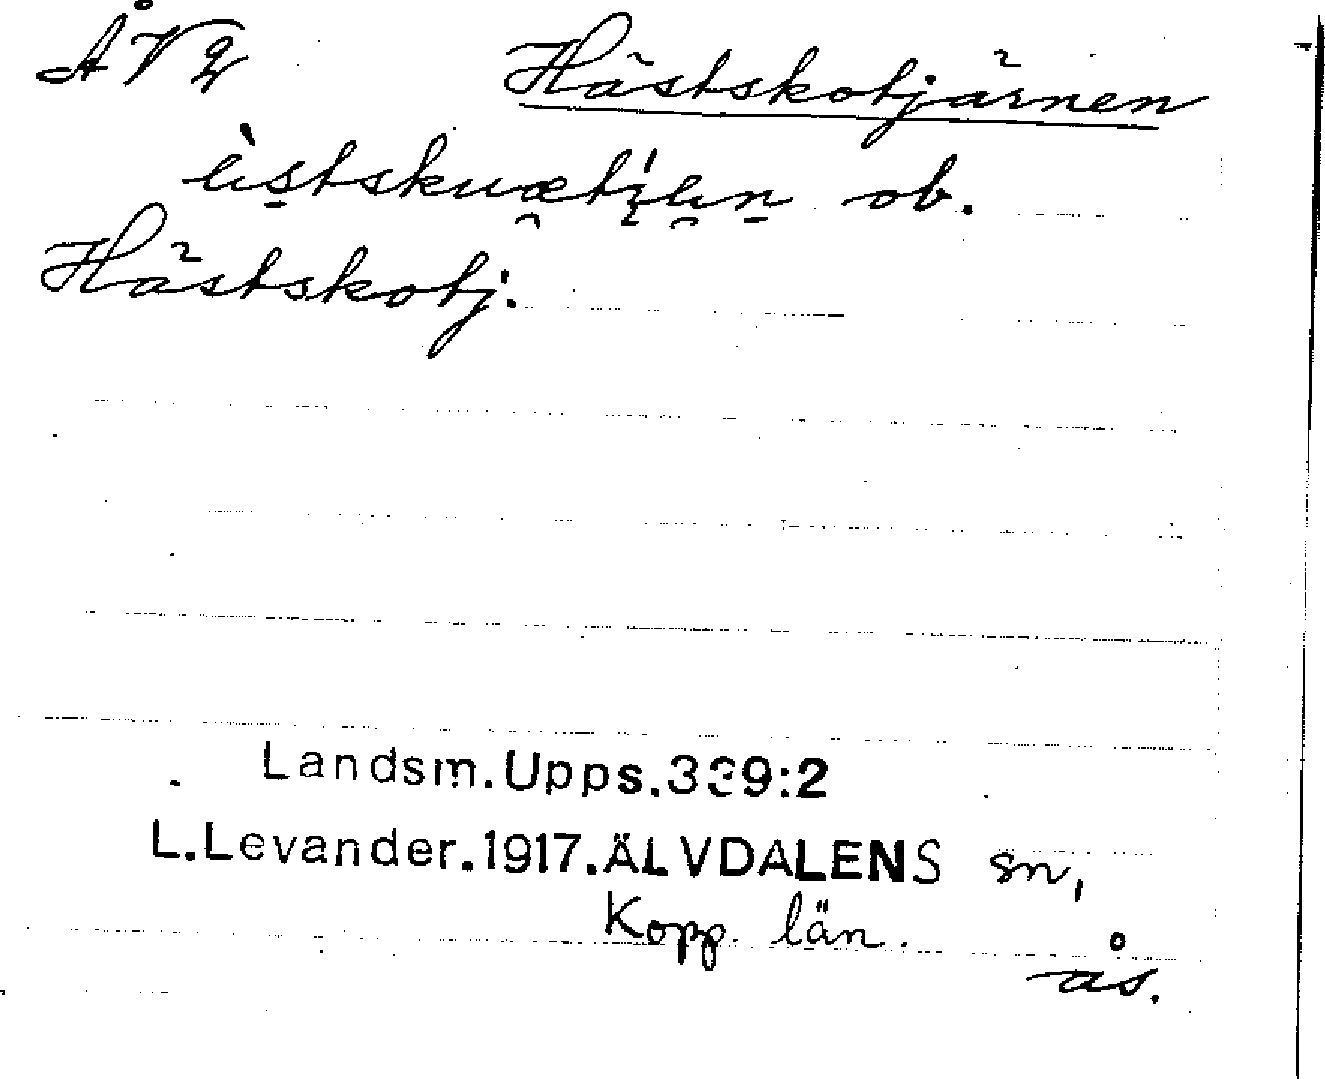 ÅVg Hästskotjärnen
ob.
Hästskotj.
Landsm.Upps.339:2
L.Levander.1917.ÄLVDALENS sn,
Kopp. län.
ås.